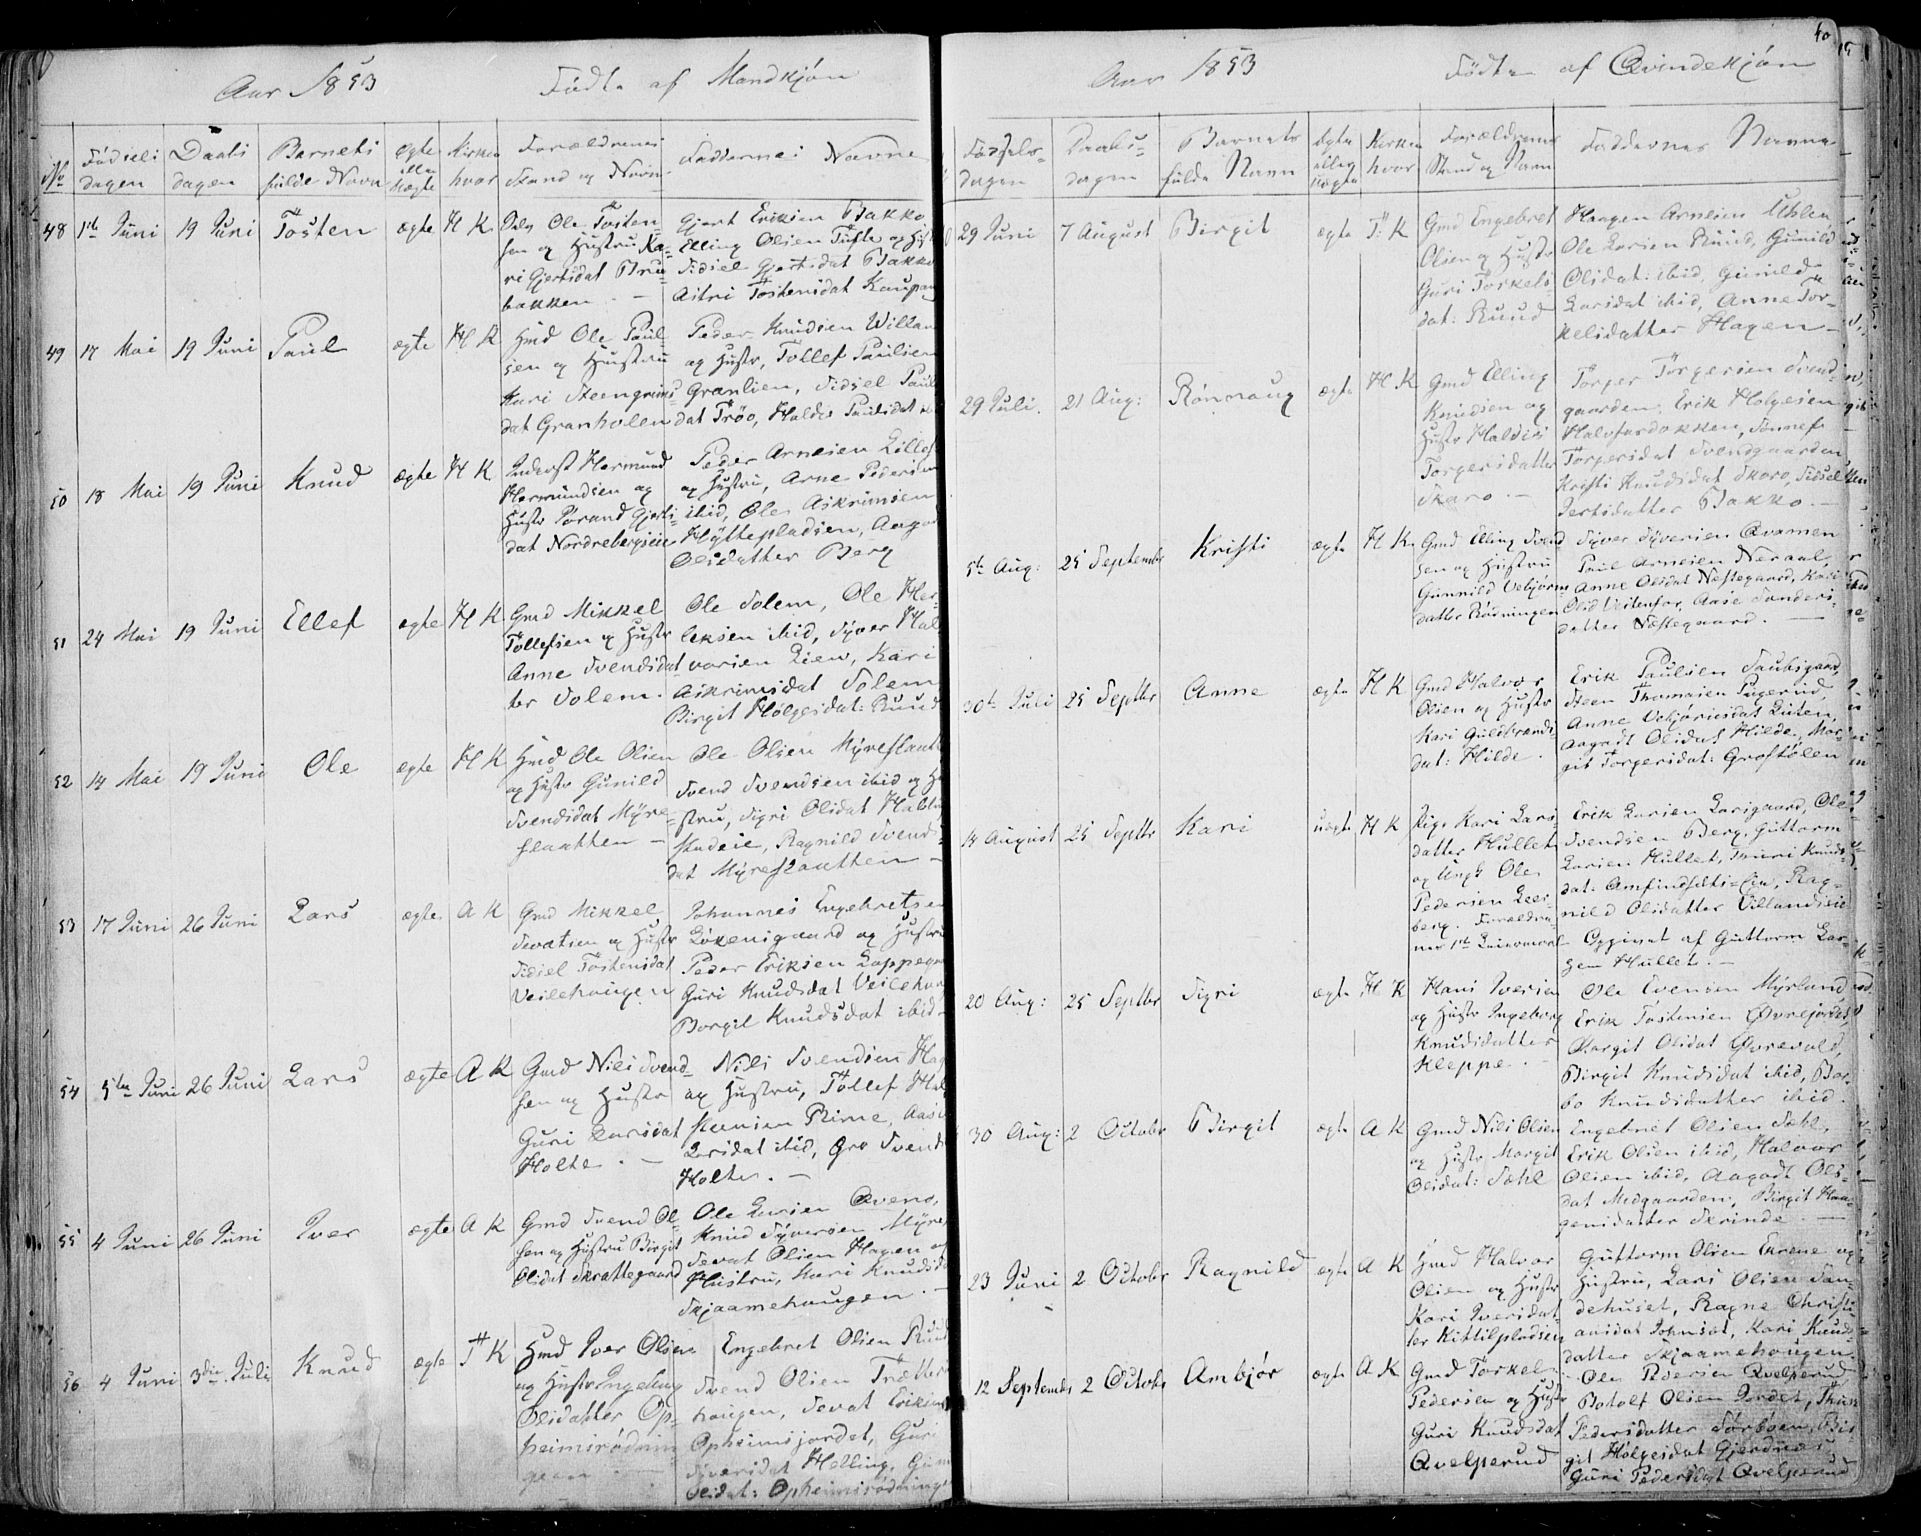 Aar 1853 Fødte af Mandkjøn
No Fødsels dagen Daabs dagen Barnets fulde Navn Ægte eller Uægte Kirken hvor Forældrenes Stand og Navn Faddernes Navne
48 1ste Juni 19 Juni Tosten ægte H K
Ole Tosten-
sen og Hustru Ka-
ri Gjertsdat Bru-
bakken. —
Gjert Eriksen Bakko
Elling Olsen Tufte og
Sidsel Gjertsdat Bakko
Astri Tostensdat
49 17 Mai 19 Juni Paul ægte H K
Hmd Ole Paul-
sen og Hustru
Kari Steengrims
dat Granholen
Peder Knudsen Willan
og Hustr, Tollef Paulsen
Granlien, Sidsel Paul
dat Trøo, Haldis Paulsdat
50 18 Mai 19 Juni Knud ægte H K
Inderst Hermund
Hermundsen og
Hustr Jørand Gjerts-
dat Nordrebergseie
Peder Arnesen
og Hustru, Arne Pedersen
ibid, Ole Askrimsen
Hyttepladsen, Aagot
Olsdatter Berg
51 24 Mai 19 Juni Ellef ægte H K
Gmd Mikkel
Tollefsen og Hustr
Anne Svendsdat
ter Solem.
Ole Solem, Ole Her-
leksen ibid, Syver Hal
vorsen Lien, Kari
Askrimsdat Solem
Birgit Holgesdat: Ruud
52 14 Mai 19 Juni Ole ægte H K
Hmd Ole Olsen
og Hustr Gunild
Svendsdat Myre-
slaatten —
Ole Olsen Myreslaatt
Svend Svendsen ibid og Hu
stru, Sigri Olsdat
Ragnild Svends-
dat Myreslaatten —
53 17 Juni 26 Juni Lars ægte A K
Gmd Mikkel
Sevatsen og Hustr
Sidsel Tostensdat
Veslehaugen
Johannes Engebretsen
Løkensgaard og Hustru
Peder Eriksen
Guri Knudsdat Veslehaug
Borgil Knudsdat ibid —
54 5te Juni 26 Juni Lars ægte A K
Gmd Nils Svend-
sen og Hustr
Guri Larsdat
Holte. —
Nils Svendsen Hag
og Hustru, Tollef
Rime, Aase
Larsdat ibid, Gro Svends
Holte. —
55 4 Juni 26 Juni Iver ægte A K
Gmd Svend Ol-
sen og Hustru Birgit
Olsdat Skrattegaard
Ole Larsen Qveno,
Knud Syversen
Sevat Olsen Hagen og
Hustru, Kari Knudsda
Skjaamehaugen. —
56 4 Juni 3die Juli Knud ægte T K
Hmd Iver Olsen
og Hustr Ingeborg
Olsdatter Op-
heimsrødnin
gen. —
Engebret Olsen Ruud
Svend Olsen
haugen, Sevat Eriksen
Opheimsjordet, Guri
Syversdat Helling, Gun
Olsdat: Opheimsrødninge
Aar 1853 Fødte af Qvindekjøn
40
Fødsels- dagen Daabs- dagen Barnets fulde Navn Ægte eller Uægte Kirken hvor Forældrenes Stand og Navn Faddernes Navne
29 Juni 7 August Birgit ægte T: K
Gmd Engebret
Olsen og Hustr
Guri Torkels
dat: Ruud
Haagen Arnesen Uhlen
Ole Larsen Ruud, Gunild
Olsdat: ibid, Gunild
Larsdat ibid, Anne Tor-
kelsdatter Hagen —
29 Juli. 21 Aug: Rønnaug ægte H K
Gmd Elling
Knudsen og
Hustr Haldis
Torgersdatter
Skaro. —
Torger Torgersen Svend-
gaarden, Erik Holgesen
Halvfardokken, Sønnef
Torgersdat Svendgaarden
Kristi Knudsdat Skoro, Sidsel
Gertsdatter Bakko. —
5te Aug: 25 September Kristi ægte H K
Gmd Elling Svend
sen og Hustru
Gunnild Vebjørns
datter Rødningen
Syver Syversen Qvamen
Paul Arnesen Neraal,
Anne Olsdat Næstegaard, Kari
Olsd Veitenfor, Aase Sanders-
datter Næstegaard. —
30te Juli 25 Septbr Anne ægte H K
Gmd Halvor
Olsen og Hustr
Kari Guldbrands-
dat: Hilde.
Erik Paulsen
Steen Thomasen Pugerud,
Anne Vebjørnsdat
Aagodt Olsdat Hilde, Mar-
git Torgersdat: Grøstølen
14 August 25 Septbr Kari uægte H K
Pige Kari Lars
datter Hullet
og Ungk Ole
Pedersen Lees
berg. Forældre
nes 1ste Leiermaal
Erik Larsen Larsgaard, Ole
Svendsen Berg, Guttorm
Larsen Hullet, Thuri Knuds-
dat: Rag-
nild Olsdatter Villandseie
Opgivet af Guttorm Lar-
sen Hullet. —
20 Aug: 25 Septbr Sigri ægte H K
Hans Iversen
og Hustr Ingeborg
Knudsdatter
Kleppe. —
Ole Evensen Myrland
Erik Tostensen Øvrejordet,
Margit Olsdat Øvrevold,
Birgit Knudsdat ibid, Bar-
bo Knudsdatter ibid.
30 Aug: 2 October Birgit ægte A K
Gmd Nils Olsen
og Hustr Margit
Olsdat: Sæhl
Engebret Olsen Sæhl
Erik Olsen ibid, Halvor
Olsen ibid, Aagodt Ols-
dat Midgaarden, Birgit Haa-
gensdatter Strinde —
23 Juni 2 Octobr Ragnild ægte A K
Hmd Halvor
Olsen og Hustr
Kari Iversdat-
ter Kittilpladsen
Guttorm Olsen Ekrene og
Hustru, Lars Olsen San-
dehuset, Ragne Christi-
ansdat Kari Knuds-
datter Skjaamehougen.
12 Septembr 2 Octobr Ambjør ægte A K
Gmd Torkel
Pedersen og Hustr
Guri Knudsdat
Qvelperud
Ole Pedersen Qvelperud
Botolf Olsen Jordet,
Pedersdatter Sørbøen, Bir-
git Holgesdat Gjerdnes
Guri Pedersdat Qvelperud